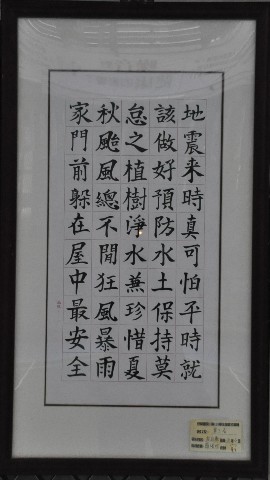 地震来時真可怕平時就
該做好預防水土保持莫
怠之植樹淨水無珍惜夏
秋颱風總不閒狂風暴雨
家門前躲在屋中最安全